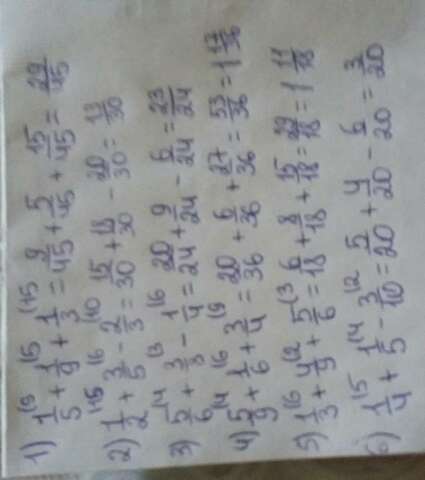 1) 1/5 (9 + 1/9 (5 + 1/3 (15 = 9/45 + 5/45 + 15/45 = 29/45
2) 1/2 (15 + 3/5 (6 - 2/3 (10 = 15/30 + 18/30 - 20/30 = 13/30
3) 5/6 (4 + 3/8 (3 - 1/4 (6 = 20/24 + 9/24 - 6/24 = 23/24
4) 5/9 (4 + 1/6 (6 + 3/4 (9 = 20/36 + 6/36 + 27/36 = 53/36 = 1 17/36
5) 1/3 (6 + 4/9 (2 + 5/6 (3 = 6/18 + 8/18 + 15/18 = 29/18 = 1 11/18
6) 1/4 (5 + 1/5 (4 - 3/10 (2 = 5/20 + 4/20 - 6/20 = 3/20